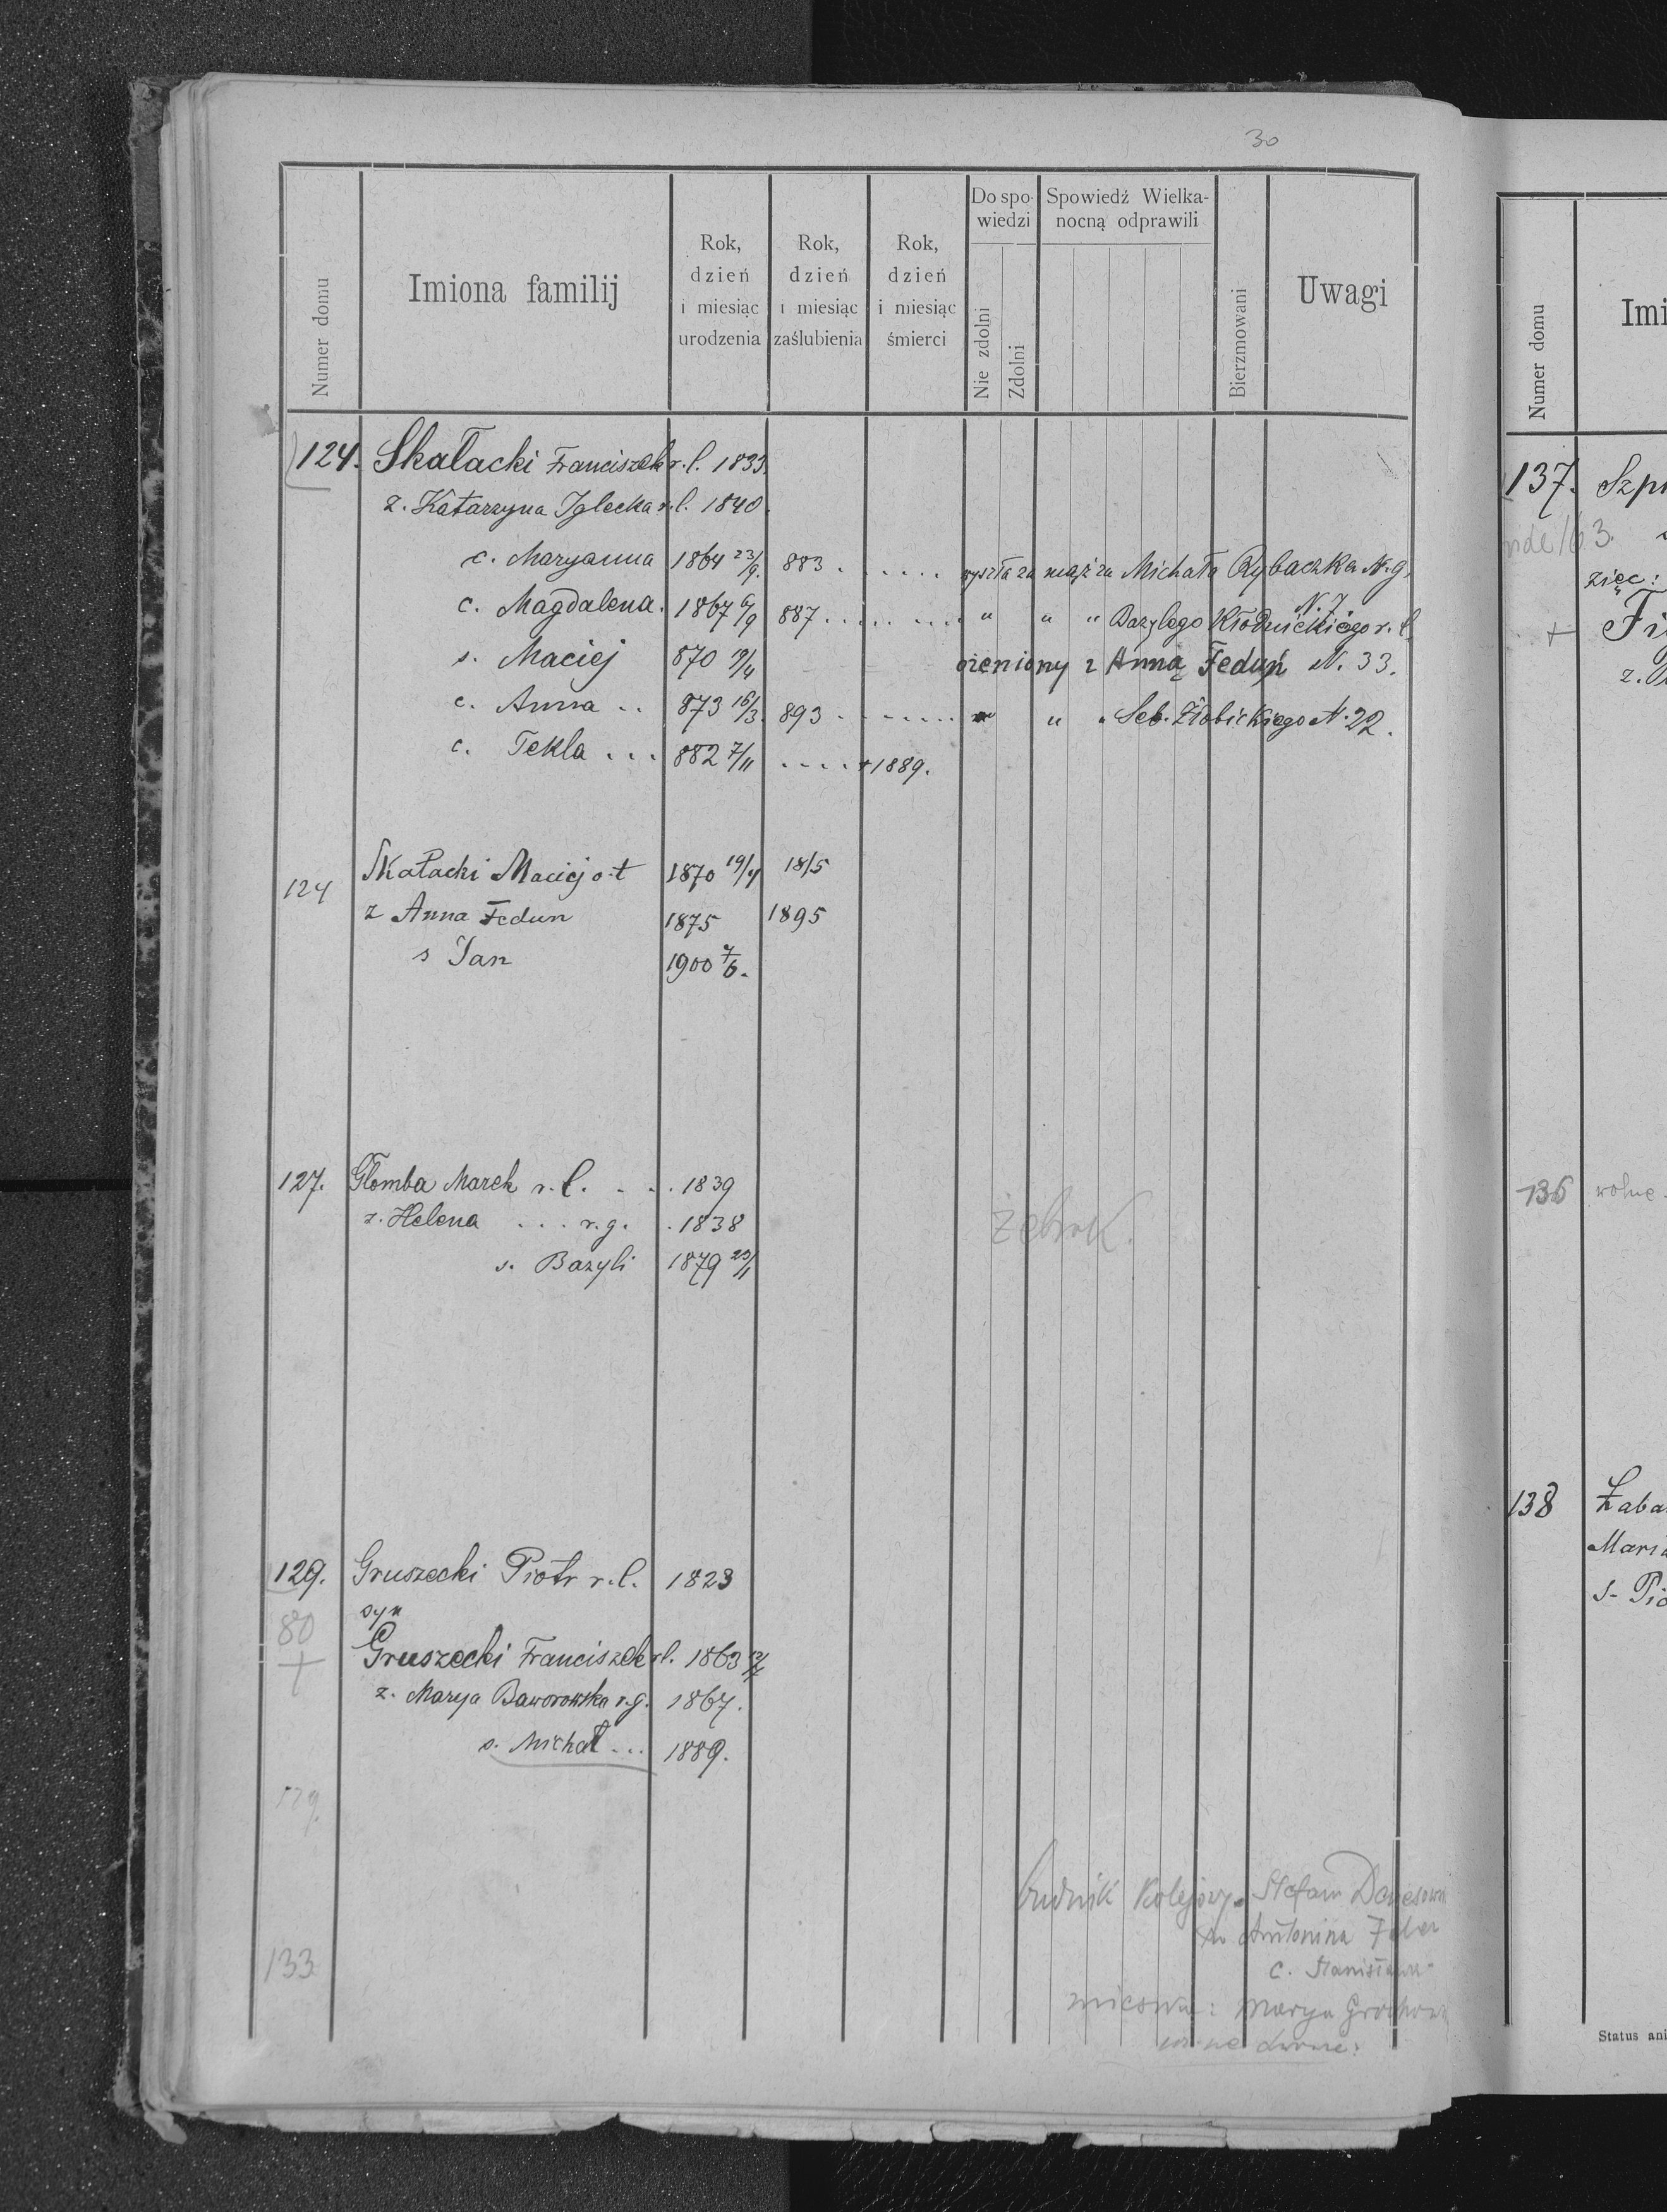 30
Numer domu
Imiona familij
Rok, dzień i miesiąc urodzenia
Rok, dzień i miesiąc zaślubienia
Rok, dzień i miesiąc śmierci
Do spowiedzi
Nie zdolni
Zdolni
Spowiedź Wielkanocną odprawili
Bierzmowani
Uwagi
124. Skałacki Franciszek r. l. 1833
z. Katarzyna Iglecka r. l. 1840.
c. Maryanna 1864 23/9. 883 . . . . . . wyszła za mąż za Michała Rybaczka N. 9.
c. Magdalena. 1867 6/9 887 . . . . . . " " " Bazylego Kłodnickiego r. l. N. 7
s. Maciej 870 19/4 ożeniony z Anną Feduń N. 33.
c. Anna . . 873 16/3. 893 . . . . . . " " " Seb. Złobickiego N. 22.
c. Tekla . . . 882 7/11 . . . . +1889.
124 Skałacki Maciej o-t 1870 19/4 18/5
z Anna Fedun 1875 1895
s Jan 1900 7/6.
127. Głomba Marek r. l. . . . 1839
z. Helena . . . r. g. . 1838 żebrak.
s. Bazyli 1879 23/1
129. Gruszecki Piotr r. l. 1823
80 syn
+ Gruszecki Franciszek r l. 1863
z. Marya Baworowska r. g. 1867.
s. Michał . . . 1889.
budnik kolejowy Stefan
Antonina
133 c. Stanisława
Marya
137. Szp
163.
zięc:
+ Fi
z.
136 wolne
138 Łaba
Mari
s- Pio
Imi
Numer domu
Status ani